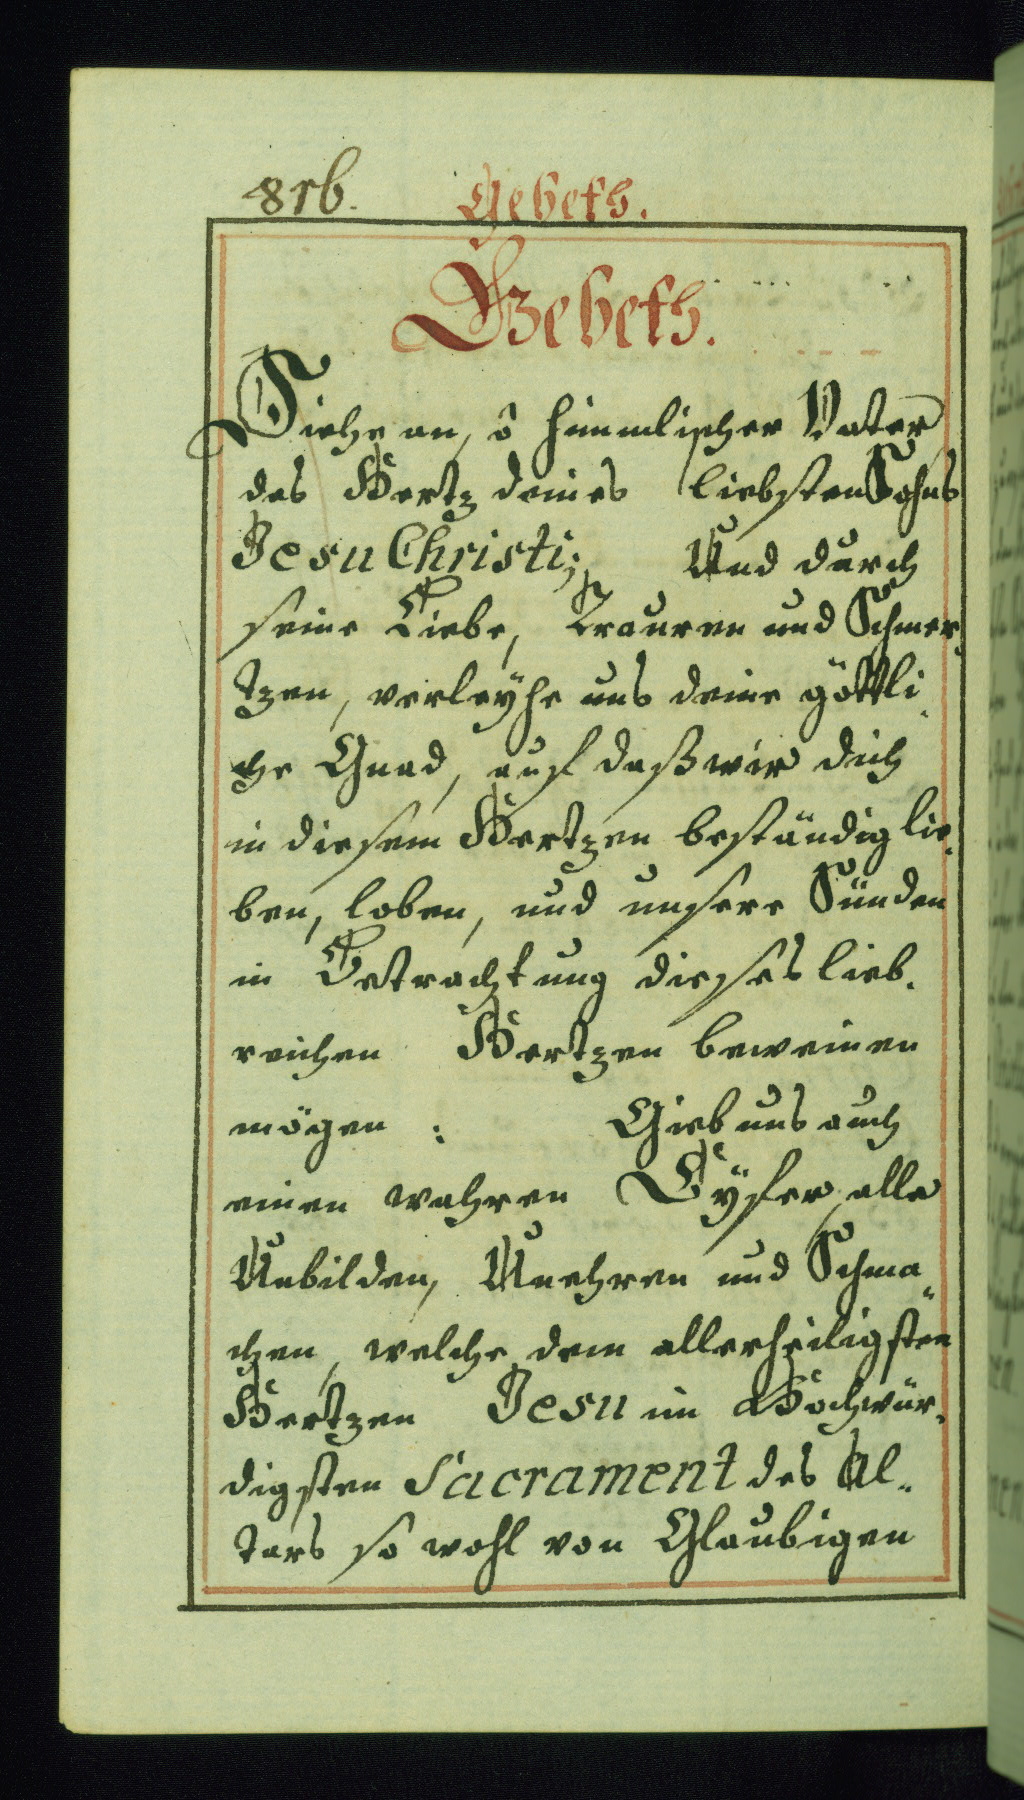 816. Gebeth.
Gebeth.
Siehe an, ô himmlischer Vater
das Hertz deines liebsten Sohns
Jesu Christi; Und durch
seine Liebe, Trauren und Schmer„
tzen, verleÿhe uns deine göttli„
che Gnad, auf daß wir dich
in diesem Hertzen beständig lie„
ben, loben, und unsere Sünden
in Betrachtung dieses lieb„
reichen Hertzen beweinen
mögen : Gieb uns auch
einen wahren Eÿfer, alle
Unbilden, Unehren und Schma„
chen, welche dem allerheiligsten
Hertzen Jesu im Hochwür„
digsten Sacrament des Al„
tars so wohl von Glaubigen